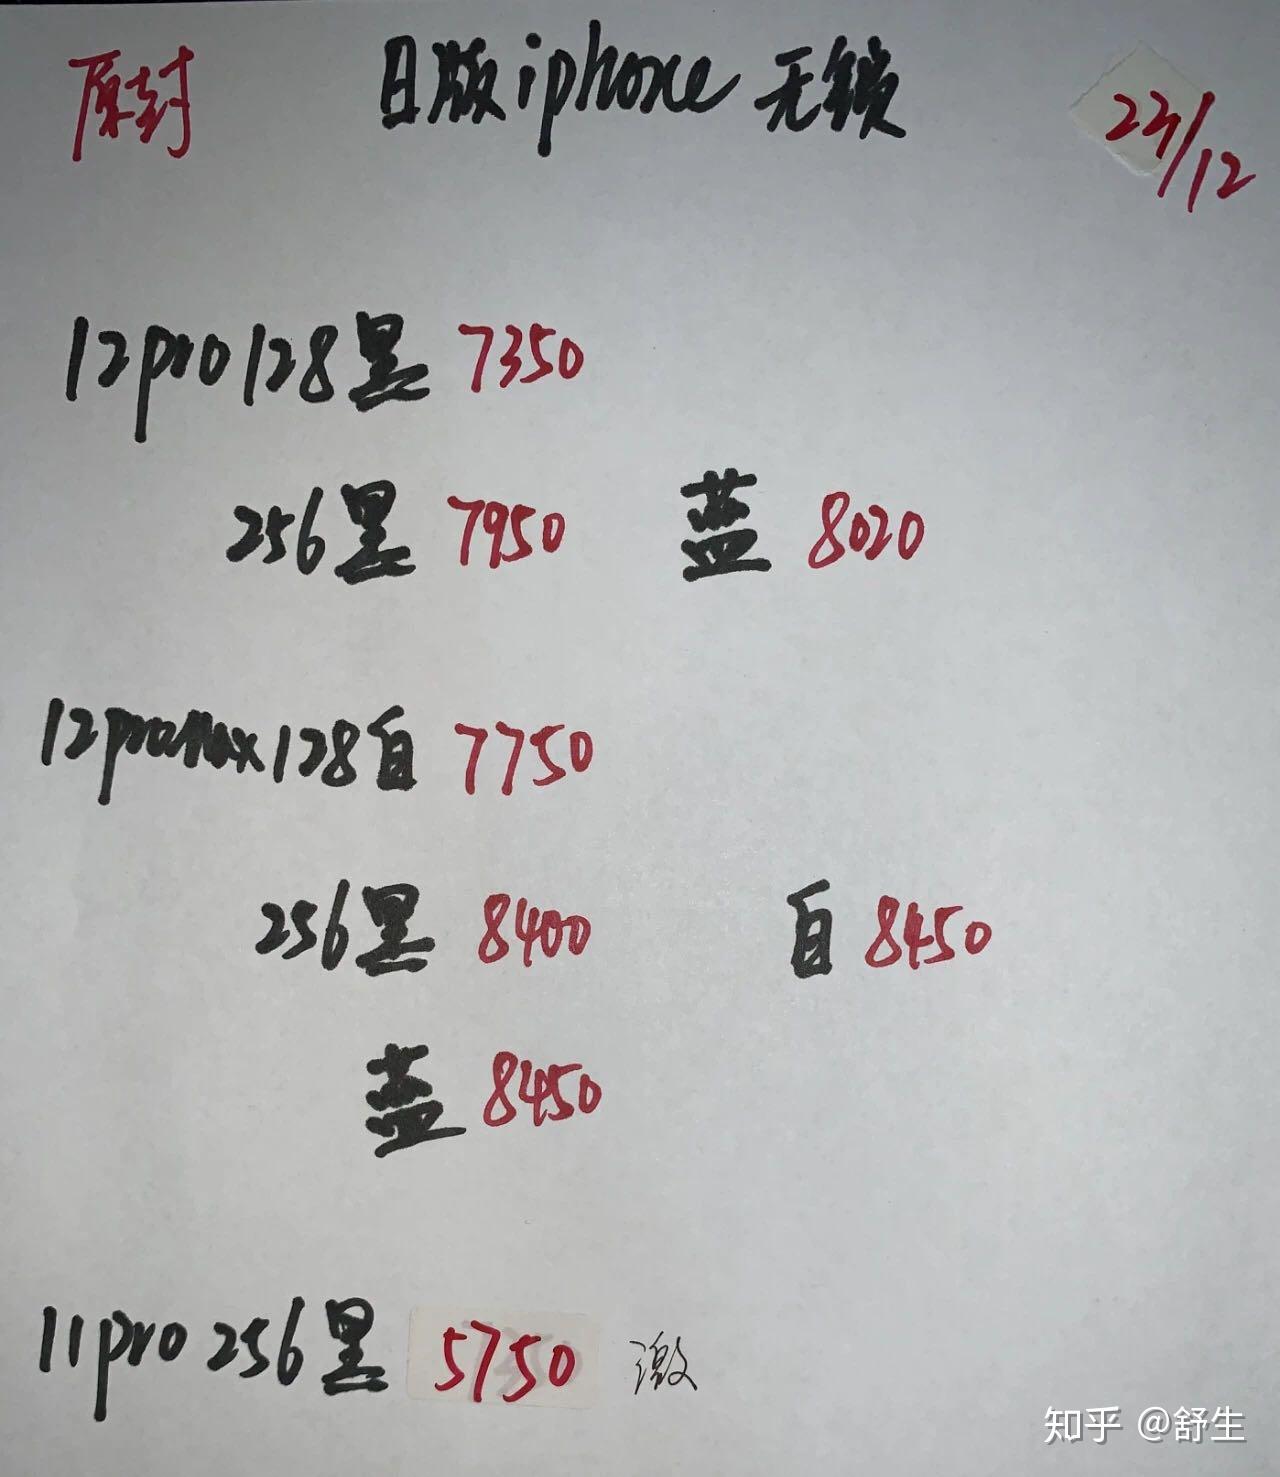 原封 日版iphone 无锁 23/12
12pro 128黑 7350
256黑 7950 蓝 8020
12promax 128白 7750
256黑 8400 白 8450
蓝 8450
11pro 256黑 5750 激
知乎 @舒生